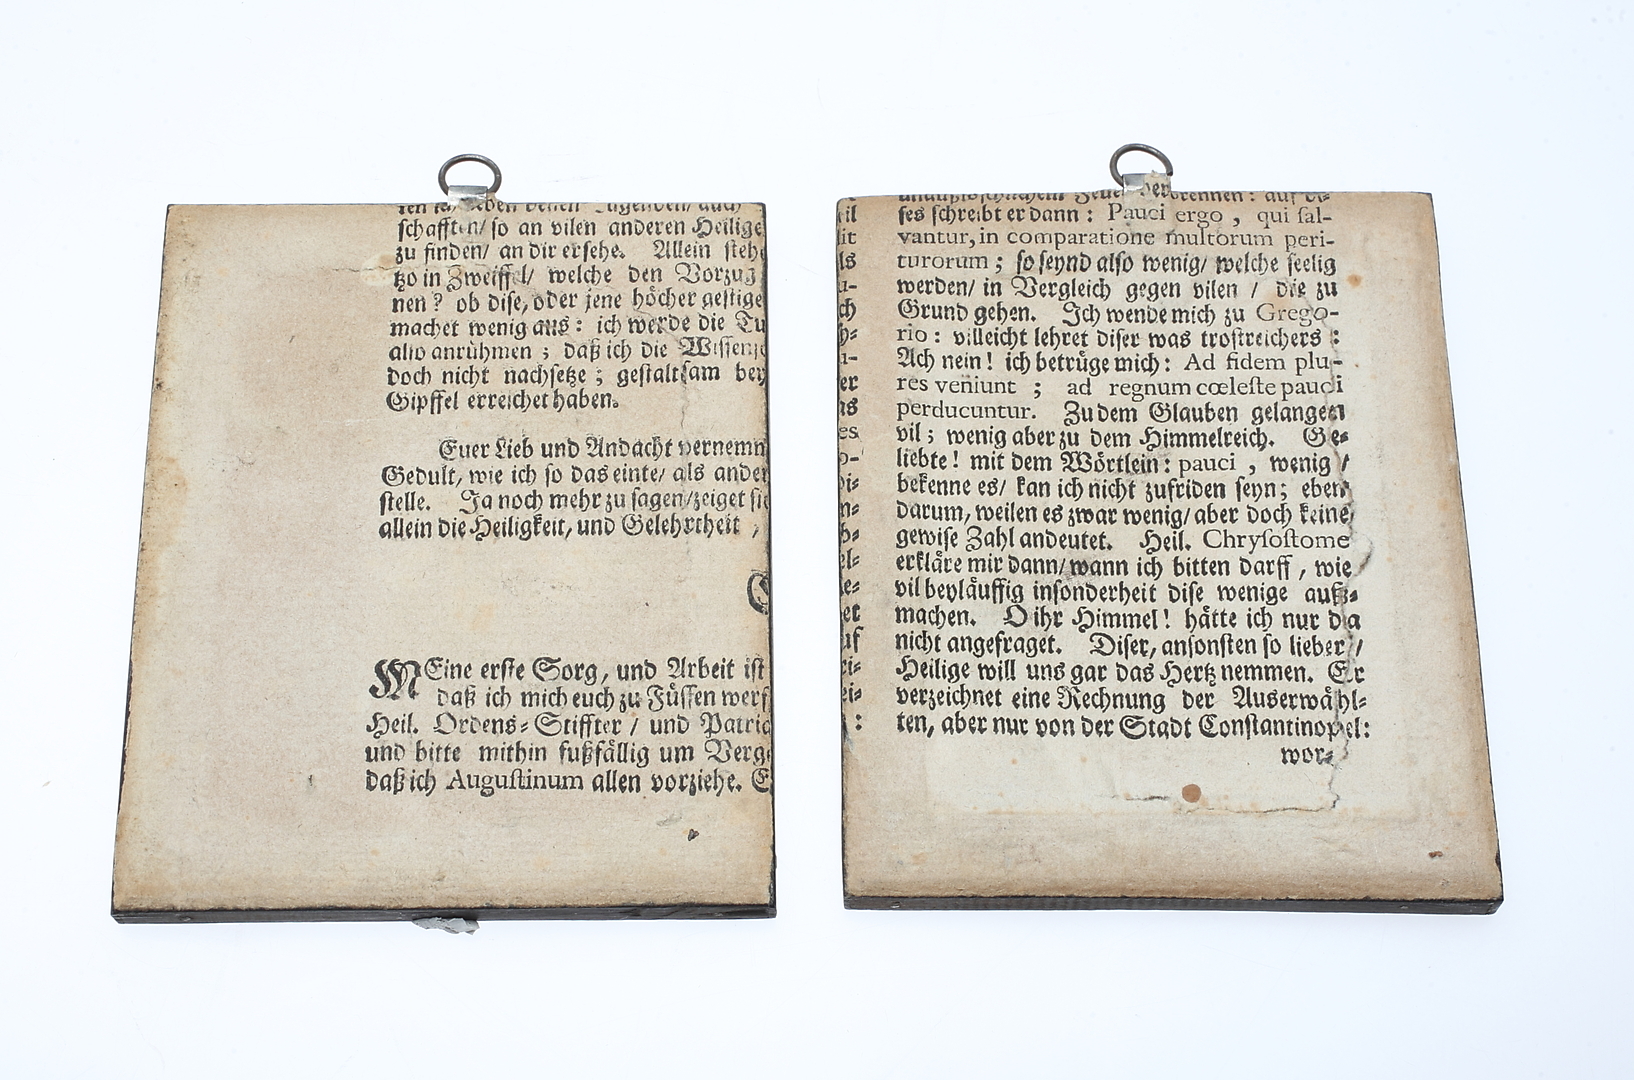 schafften/ so an vilen anderen Heilige
zu finden/ an dir ersehe. Allein steh
tzo in Zweiffel/ welche den Vorzug
nen? ob dise, oder jene höcher gestige
machet wenig aus: ich werde die Tu
also anrühmen; daß ich die Wissens
doch nicht nachsetze; gestaltsam bey
Gipffel erreichet haben.
Euer Lieb und Andacht vernemm
Gedult, wie ich so das einte/ als ander
stelle. Ja noch mehr zu sagen/ zeiget sie
allein die Heiligkeit, und Gelehrtheit,
MEine erste Sorg, und Arbeit ist
daß ich mich euch zu Füssen werf
Heil. Ordens-Stiffter/ und Patria
und bitte mithin fußfällig um Verge
daß ich Augustinum allen vorziehe. E
unaußlöschlichem Feuer verbrennen: auf di-
ses schreibt er dann: Pauci ergo, qui sal-
vantur, in comparatione multorum peri-
turorum; so seynd also wenig/ welche seelig
werden/ in Vergleich gegen vilen/ die zu
Grund gehen. Ich wende mich zu Grego-
rio: villeicht lehret diser was trostreichers:
Ach nein! ich betrüge mich: Ad fidem plu-
res veniunt; ad regnum cœleste pauci
perducuntur. Zu dem Glauben gelangen
vil; wenig aber zu dem Himmelreich. Ge-
liebte! mit dem Wörtlein: pauci, wenig/
bekenne es/ kan ich nicht zufriden seyn; eben
darum, weilen es zwar wenig/ aber doch keine
gewise Zahl andeutet. Heil. Chrysostome
erkläre mir dann/ wann ich bitten darff, wie
vil beyläuffig insonderheit dise wenige auß-
machen. O ihr Himmel! hätte ich nur da
nicht angefraget. Diser, ansonsten so lieber/
Heilige will uns gar das Hertz nemmen. Er
verzeichnet eine Rechnung der Auserwähl-
ten, aber nur von der Stadt Constantinopel:
wor-